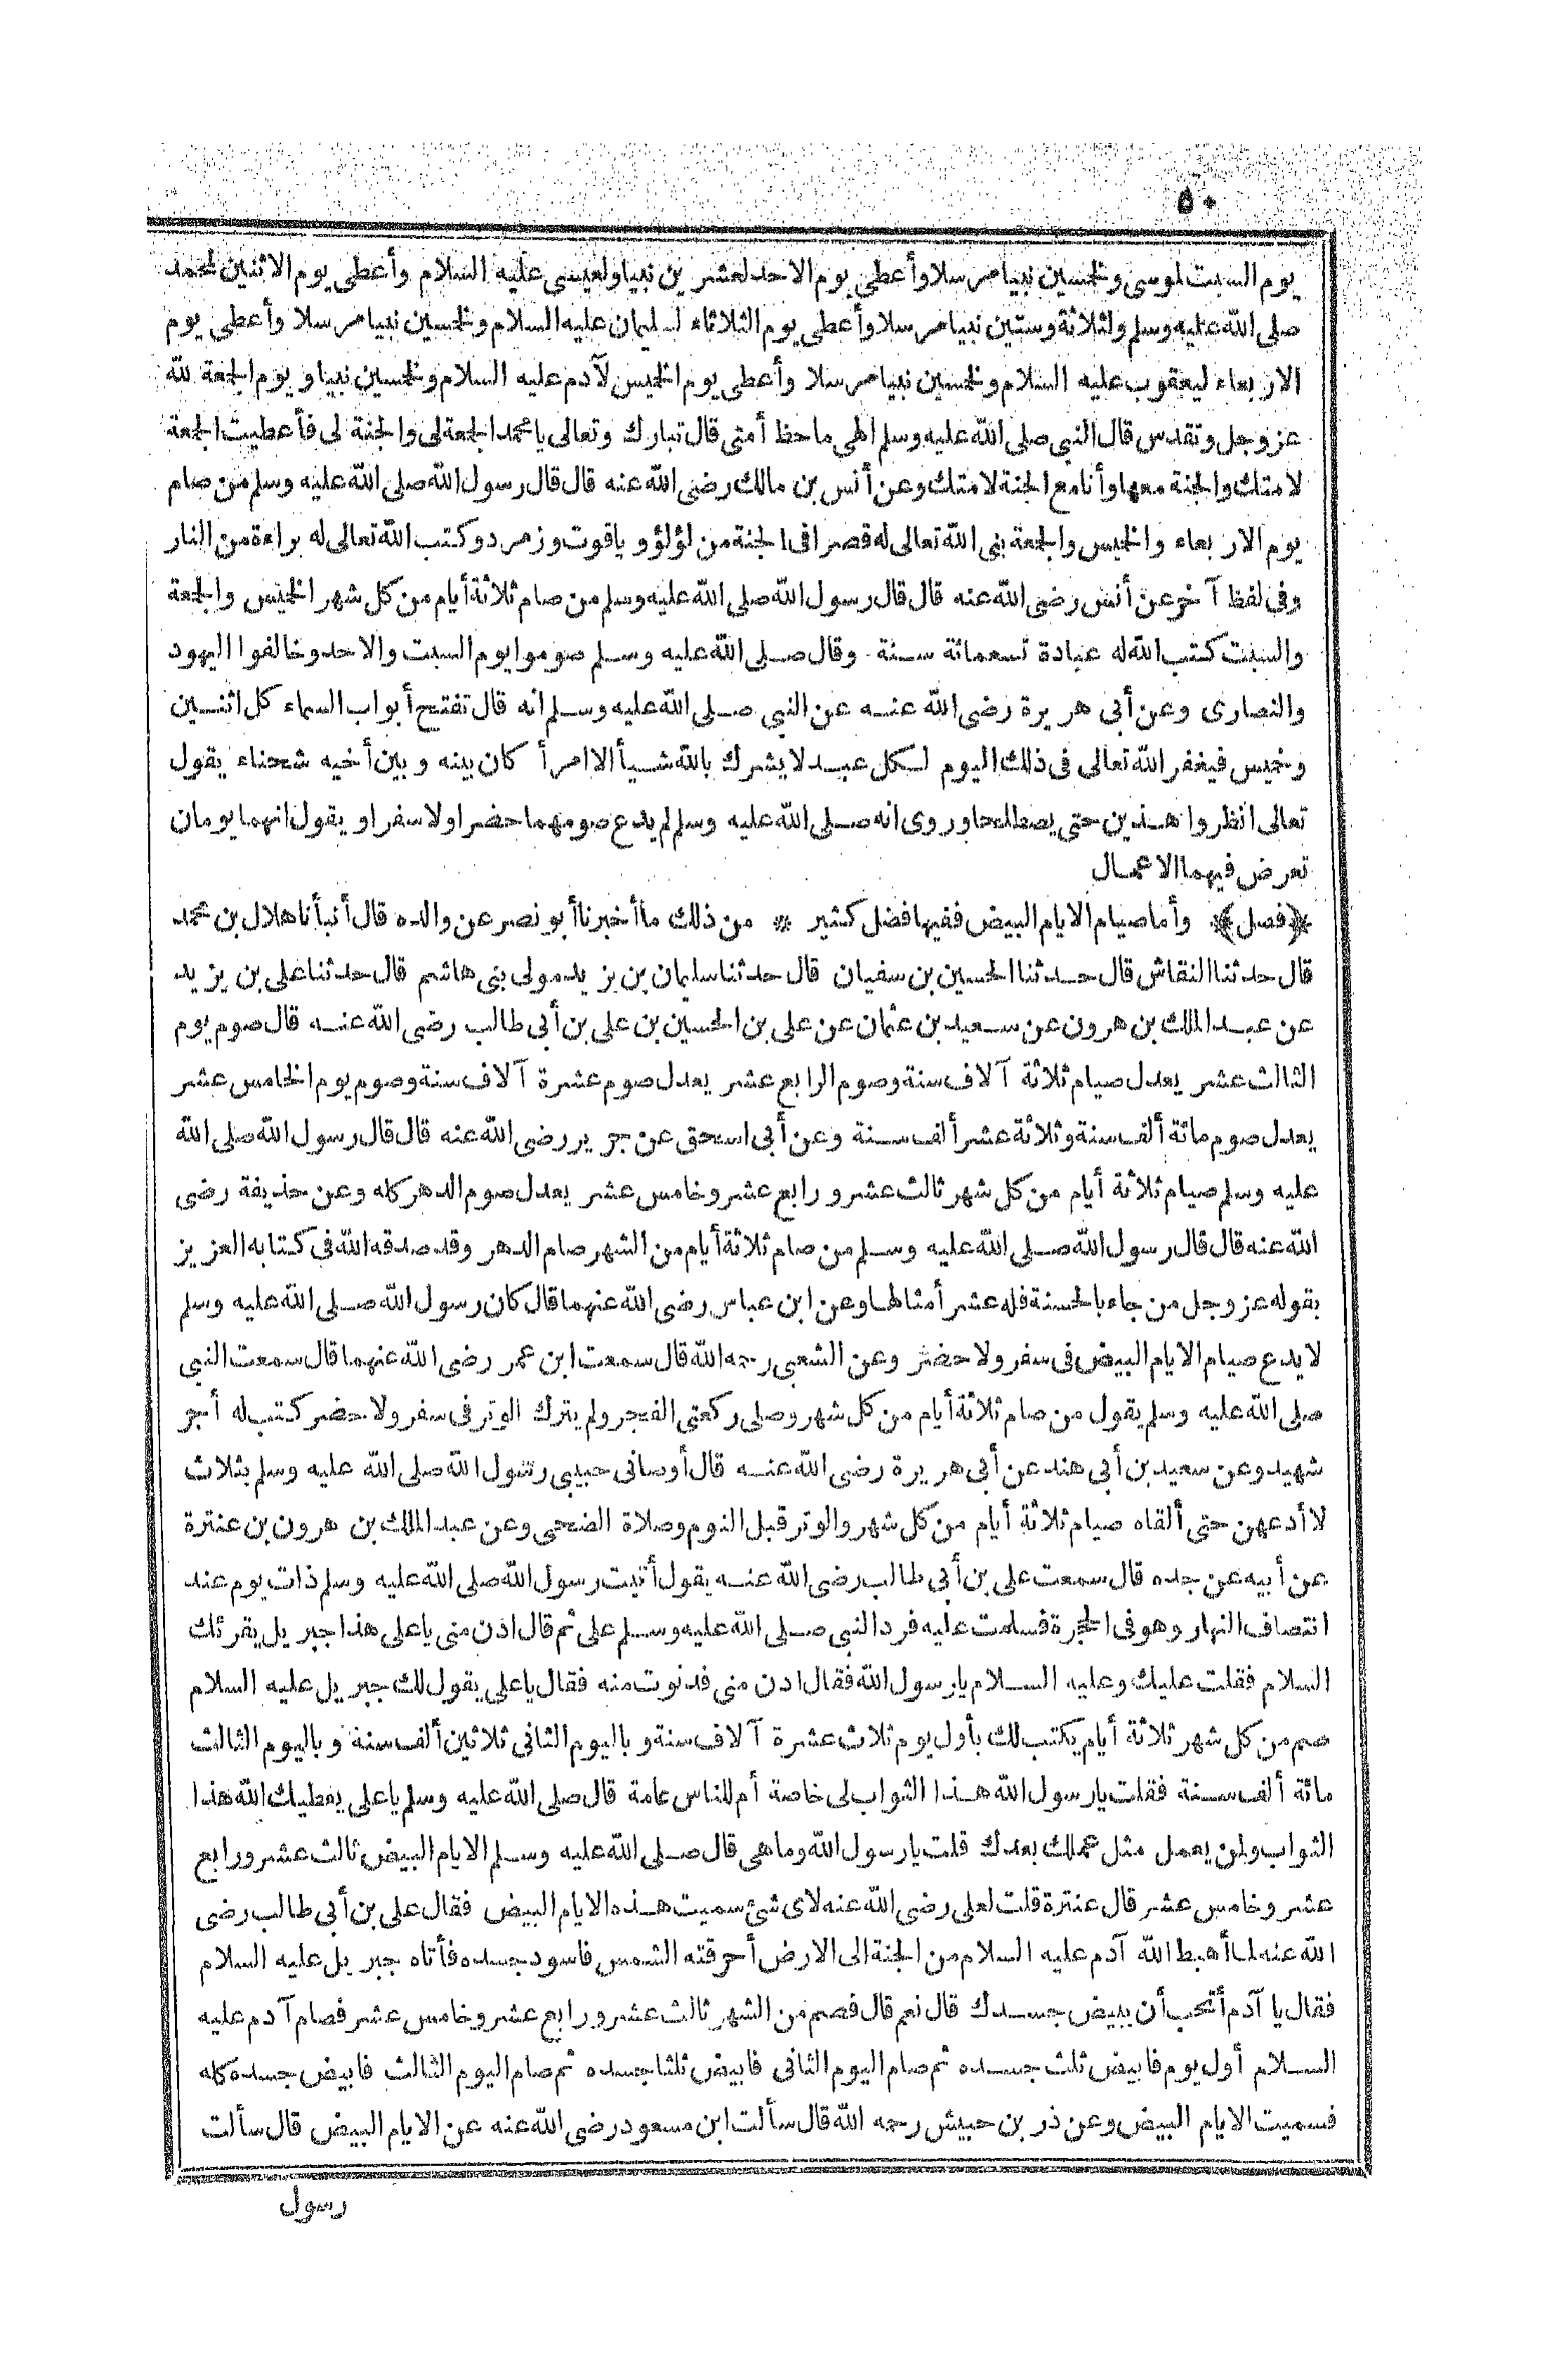 ٥٠
يوم السبت لموسى ولخمسين نبيا مرسلا وأعطى يوم الاحد لعشرين نبيا ولعيسى عليه السلام وأعطى يوم الاثنين لمحمد
صلى الله عليه وسلم ولثلاثة وستين نبيا مرسلا وأعطى يوم الثلاثاء لسليمان عليه السلام ولخمسين نبيا مرسلا وأعطى يوم
الاربعاء ليعقوب عليه السلام ولخمسين نبيا مرسلا وأعطى يوم الخميس لآدم عليه السلام ولخمسين نبيا ويوم الجمعة لله
عز وجل وتقدس قال النبى صلى الله عليه وسلم الهى ما حظ أمتى قال تبارك وتعالى يا محمد الجمعة لى والجنة لى فأعطيت الجمعة
لامتك والجنة معها وأنا مع الجنة لامتك وعن أنس بن مالك رضى الله عنه قال قال رسول الله صلى الله عليه وسلم من صام
يوم الاربعاء والخميس والجمعة بنى الله تعالى له قصرا فى الجنة من لؤلؤ وياقوت وزمرد وكتب الله تعالى له براءة من النار
وفى لفظ آخر عن أنس رضى الله عنه قال قال رسول الله صلى الله عليه وسلم من صام ثلاثة أيام من كل شهر الخميس والجمعة
والسبت كتب الله له عبادة تسعمائة سنة وقال صلى الله عليه وسلم صوموا يوم السبت والاحد وخالفوا اليهود
والنصارى وعن أبى هريرة رضى الله عنه عن النبى صلى الله عليه وسلم انه قال تفتح أبواب السماء كل اثنين
وخميس فيغفر الله تعالى فى ذلك اليوم لكل عبد لا يشرك بالله شيأ الا امرأ كان بينه وبين أخيه شحناء يقول
تعالى انظروا هذين حتى يصطلحا وروى انه صلى الله عليه وسلم لم يدع صومهما حضرا ولا سفرا ويقول انهما يومان
تعرض فيهما الاعمال
﴿فصل﴾ وأما صيام الايام البيض ففيها فضل كثير * من ذلك ما أخبرنا أبو نصر عن والده قال أنبأنا هلال بن محمد
قال حدثنا النقاش قال حدثنا الحسين بن سفيان قال حدثنا سليمان بن يزيد مولى بنى هاشم قال حدثنا على بن يزيد
عن عبد الملك بن هرون عن سعيد بن عثمان عن على بن الحسين بن على بن أبى طالب رضى الله عنه قال صوم يوم
الثالث عشر يعدل صيام ثلاثة آلاف سنة وصوم الرابع عشر يعدل صوم عشرة آلاف سنة وصوم يوم الخامس عشر
يعدل صوم مائة ألف سنة وثلاثة عشر ألف سنة وعن أبى اسحق عن جرير رضى الله عنه قال قال رسول الله صلى الله
عليه وسلم صيام ثلاثة أيام من كل شهر ثالث عشر ورابع عشر وخامس عشر يعدل صوم الدهر كله وعن حذيفة رضى
الله عنه قال قال رسول الله صلى الله عليه وسلم من صام ثلاثة أيام من الشهر صام الدهر وقد صدقه الله فى كتابه العزيز
بقوله عز وجل من جاء بالحسنة فله عشر أمثالها وعن ابن عباس رضى الله عنهما قال كان رسول الله صلى الله عليه وسلم
لا يدع صيام الايام البيض فى سفر ولا حضر وعن الشعبى رحمه الله قال سمعت ابن عمر رضى الله عنهما قال سمعت النبى
صلى الله عليه وسلم يقول من صام ثلاثة أيام من كل شهر وصلى ركعتى الفجر ولم يترك الوتر فى سفر ولا حضر كتب له أجر
شهيد وعن سعيد بن أبى هند عن أبى هريرة رضى الله عنه قال أوصانى حبيبى رسول الله صلى الله عليه وسلم بثلاث
لا أدعهن حتى ألقاه صيام ثلاثة أيام من كل شهر والوتر قبل النوم وصلاة الضحى وعن عبد الملك بن هرون بن عنترة
عن أبيه عن جده قال سمعت على بن أبى طالب رضى الله عنه يقول أتيت رسول الله صلى الله عليه وسلم ذات يوم عند
انتصاف النهار وهو فى الحجرة فسلمت عليه فرد النبى صلى الله عليه وسلم على ثم قال ادن منى يا على هذا جبريل يقرئك
السلام فقلت عليك وعليه السلام يا رسول الله فقال ادن منى فدنوت منه فقال يا على يقول لك جبريل عليه السلام
صم من كل شهر ثلاثة أيام يكتب لك بأول يوم ثلاث عشرة آلاف سنة وباليوم الثانى ثلاثين ألف سنة وباليوم الثالث
مائة ألف سنة فقلت يا رسول الله هذا الثواب لى خاصة أم للناس عامة قال صلى الله عليه وسلم يا على يعطيك الله هذا
الثواب ولمن يعمل مثل عملك بعدك قلت يا رسول الله وما هى قال صلى الله عليه وسلم الايام البيض ثالث عشر ورابع
عشر وخامس عشر قال عنترة قلت لعلى رضى الله عنه لاى شئ سميت هذه الايام البيض فقال على بن أبى طالب رضى
الله عنه لما أهبط الله آدم عليه السلام من الجنة الى الارض أحرقته الشمس فاسود جسده فأتاه جبريل عليه السلام
فقال يا آدم أتحب أن يبيض جسدك قال نعم قال فصم من الشهر ثالث عشر ورابع عشر وخامس عشر فصام آدم عليه
السلام أول يوم فابيض ثلث جسده ثم صام اليوم الثانى فابيض ثلثا جسده ثم صام اليوم الثالث فابيض جسده كله
فسميت الايام البيض وعن ذر بن حبيش رحمه الله قال سألت ابن مسعود رضى الله عنه عن الايام البيض قال سألت
رسول